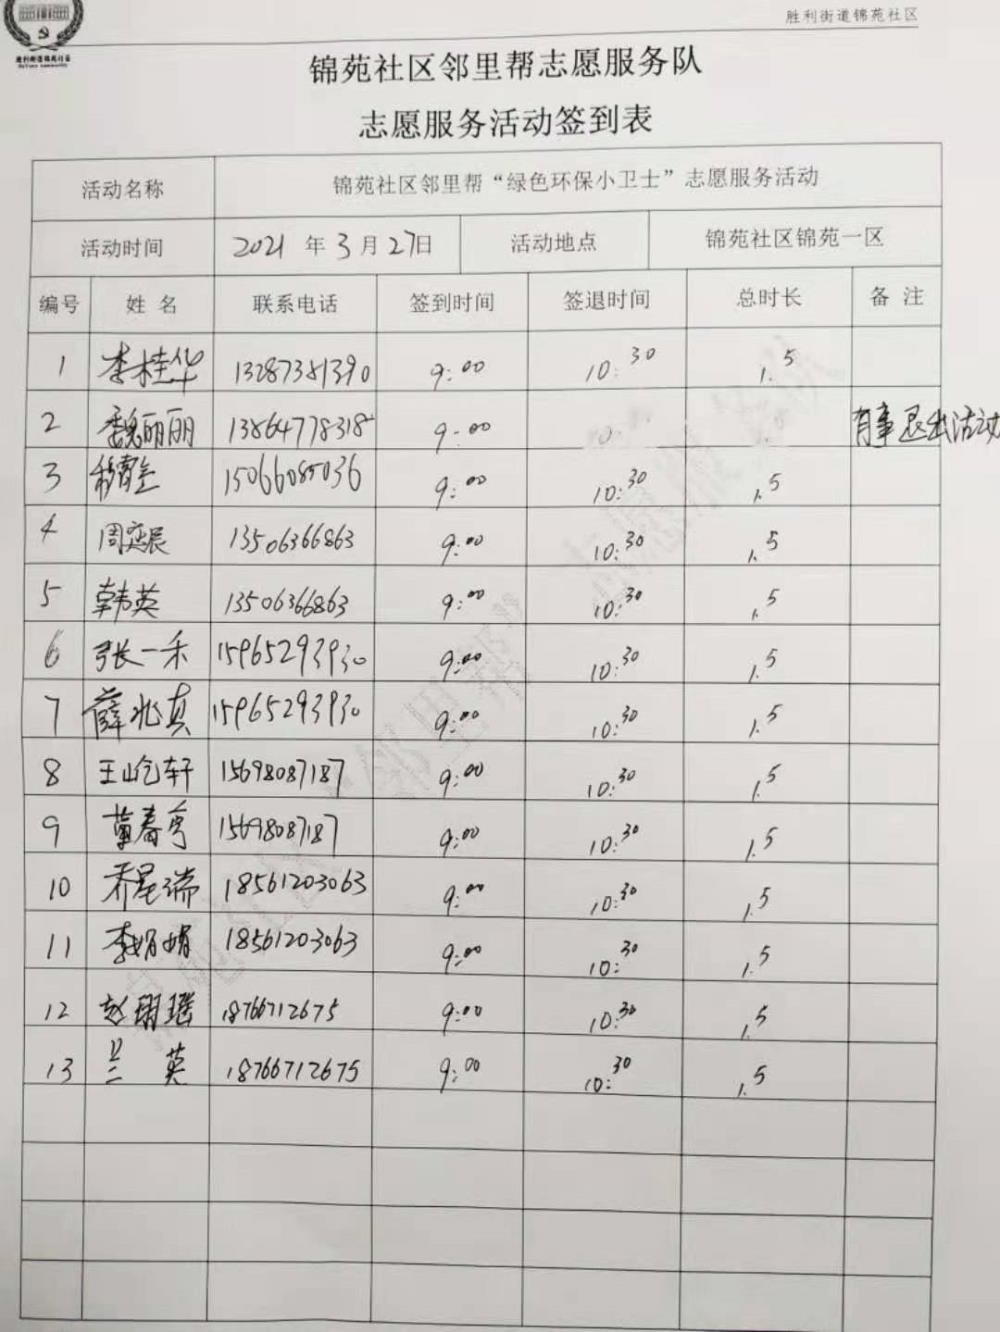 胜利街道锦苑社区
胜利街道锦苑社区
锦苑社区邻里帮志愿服务队
志愿服务活动签到表
活动名称 锦苑社区邻里帮“绿色环保小卫士”志愿服务活动
活动时间 2021 年 3 月 27日 活动地点 锦苑社区锦苑一区
编号 姓 名 联系电话 签到时间 签退时间 总时长 备 注
1 李桂华 13287381390 9:00 10:30 1.5
2 魏丽丽 13864778318 9:00 有事退出活动
3 15066085036 9:00 10:30 1.5
4 周奕辰 13506366863 9:00 10:30 1.5
5 韩英 13506366863 9:00 10:30 1.5
6 张一禾 15965293930 9:00 10:30 1.5
7 薛兆真 15965293930 9:00 10:30 1.5
8 王屹轩 15698087187 9:00 10:30 1.5
9 董春 15698087187 9:00 10:30 1.5
10 乔星瑞 18561203063 9:00 10:30 1.5
11 李娟娟 18561203063 9:00 10:30 1.5
12 赵珊瑶 18766712675 9:00 10:30 1.5
13 兰英 18766712675 9:00 10:30 1.5
锦苑社区“邻里帮”志愿服务队